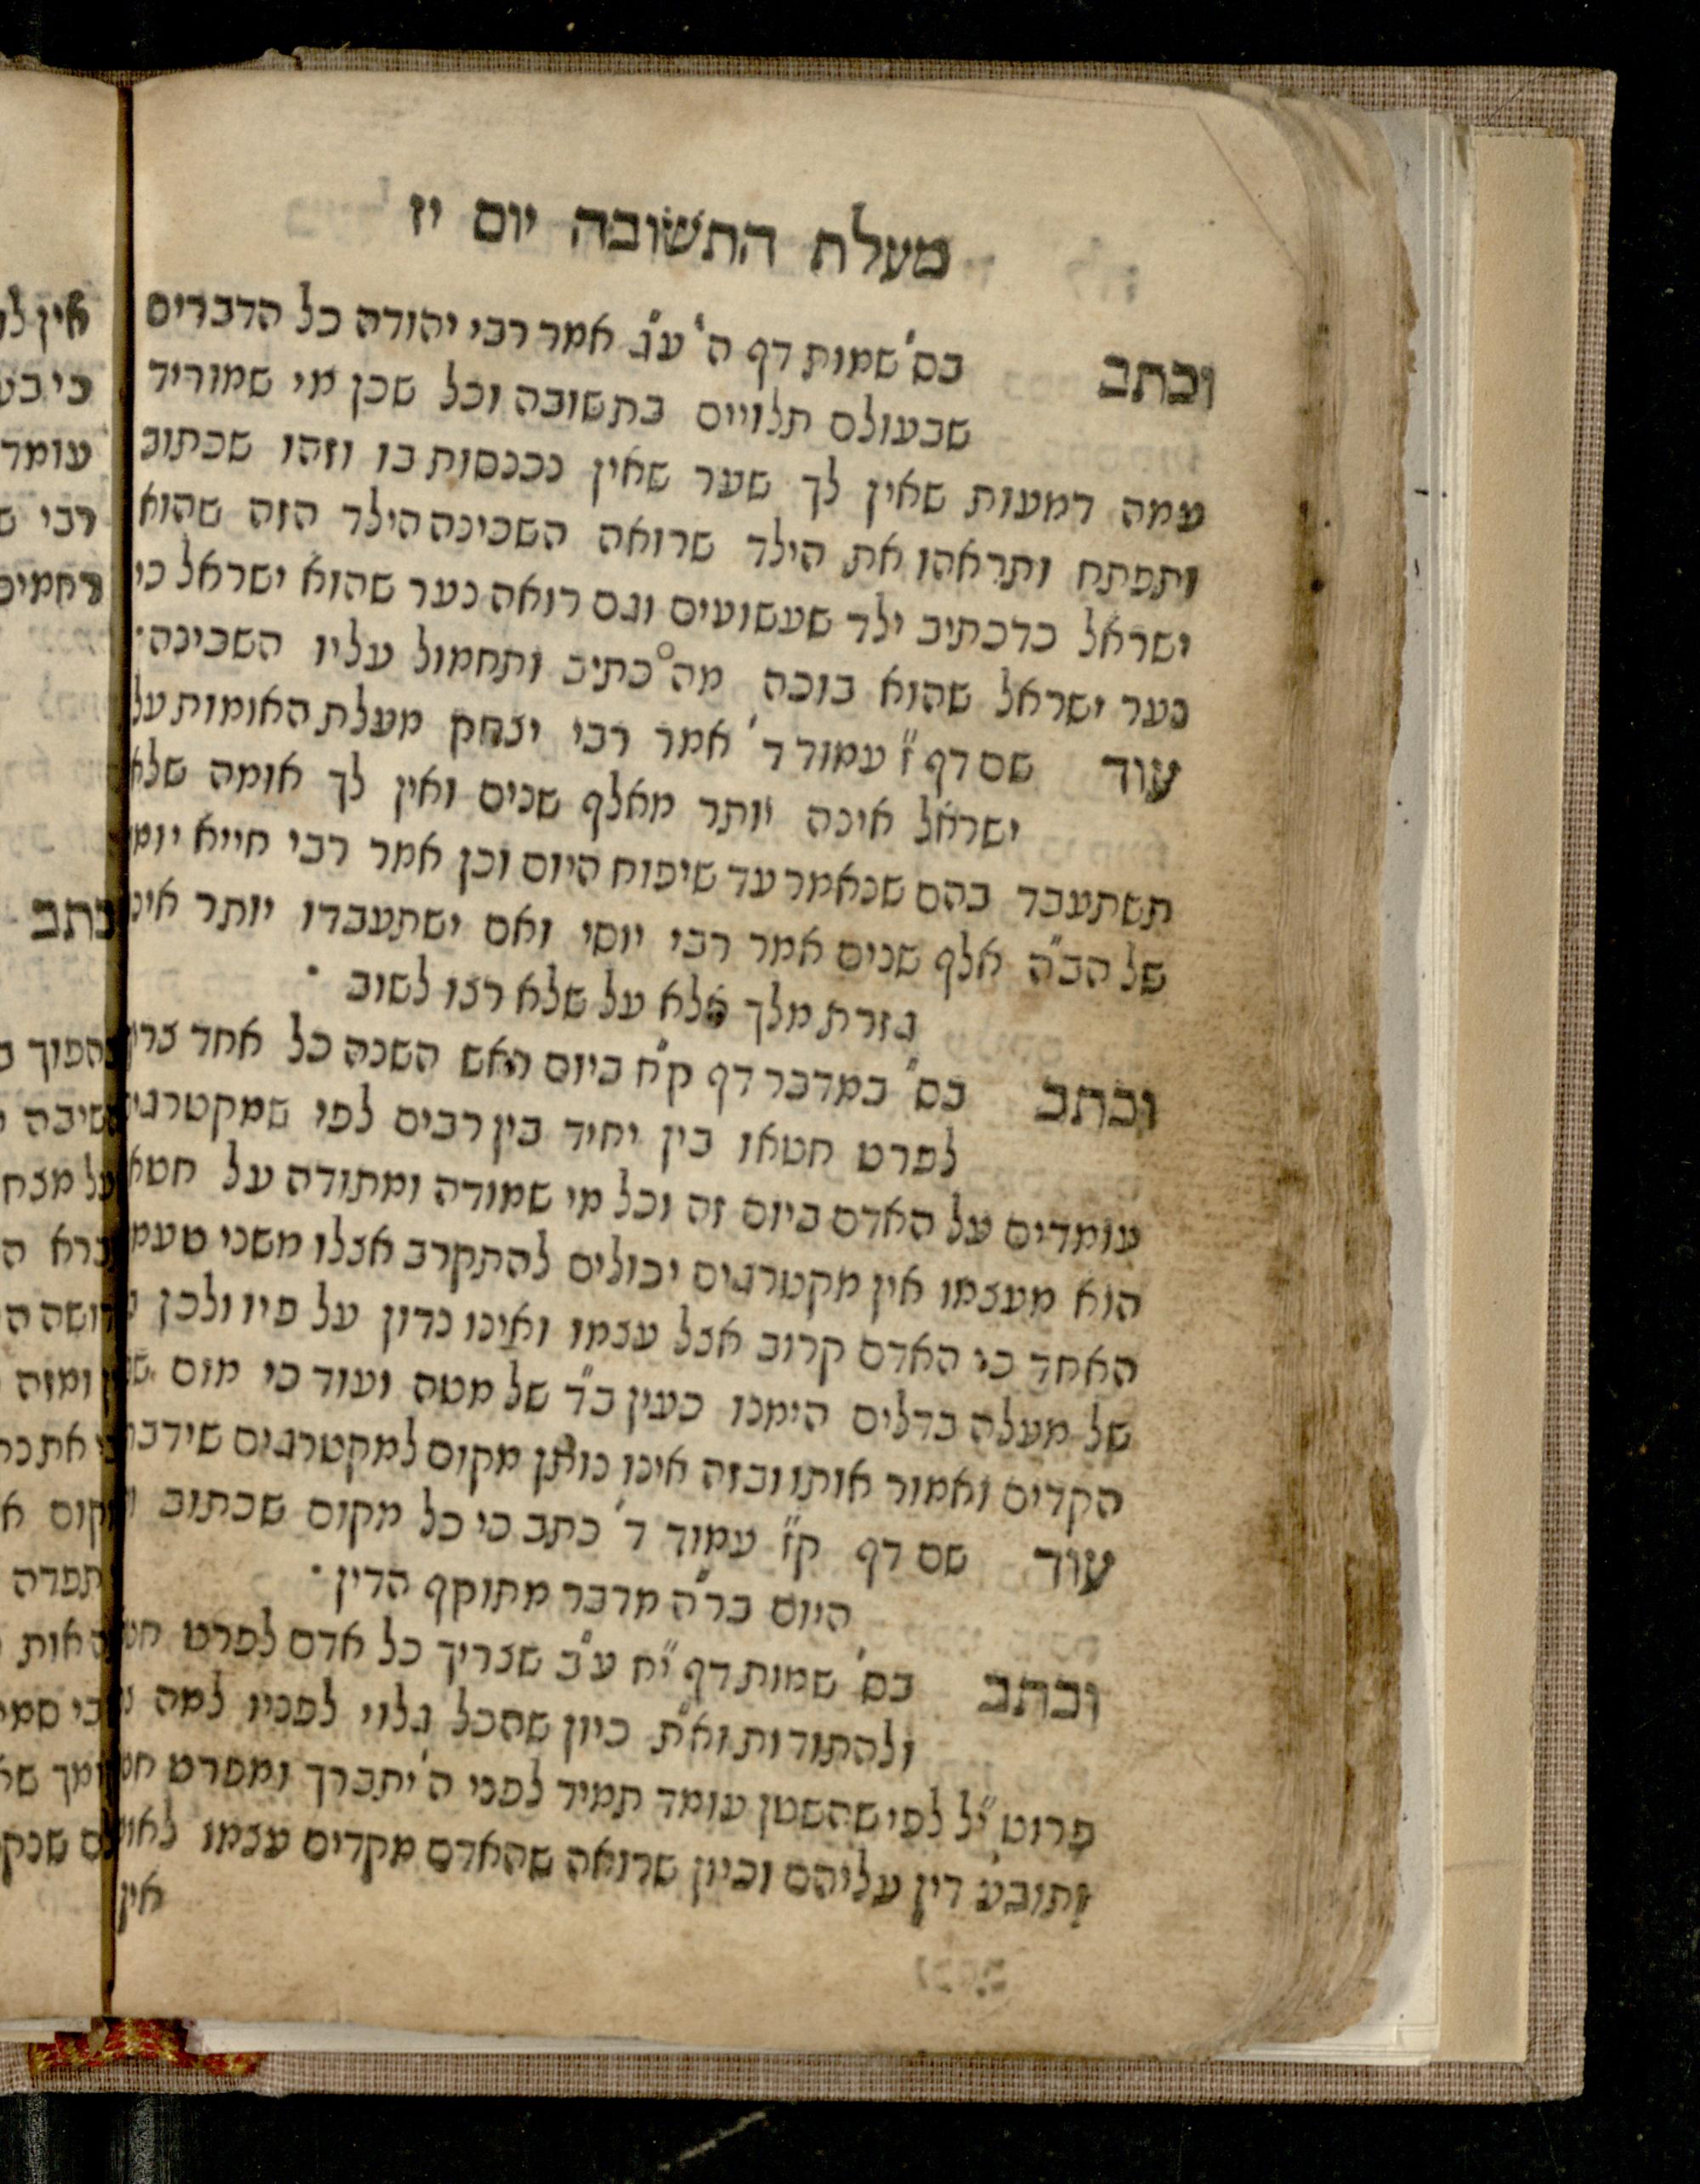 מעלת התשובה יום יז
וכתב בס' שמות דף ה' ע"ג אמר רבי יהודה כל הדברים
שבעולם תלויים בתשובה וכל שכן מי שמוריד
עמה דמעות שאין לך שער שאין נכנסות בו וזהו שכתוב
ותפתח ותראהו את הילד שרואה השכינה הילד הזה שהוא
ישראל כדכתיב ילד שעשועים וגם רואה נער שהוא ישראל כי
נער ישראל שהוא בוכה מה כתיב ותחמול עליו השכינה·
עוד שם דף ז" עמוד ד' אמר רבי יצחק מעלת האומות על
ישראל אינה יותר מאלף שנים ואין לך אומה שלא
תשתעבד בהם שנאמר עד שיפוח היום וכן אמר רבי חייא יומו
של הב"ה אלף שנים אמר רבי יוסי ואם ישתעבדו יותר אינו
גזרת מלך אלא על שלא רצו לשוב ·
וכתב בס' במדבר דף ק"ח ביום ראש השנה כל אחד צריך
לפרט חטאו בין יחיד בין רבים לפי שמקטרגים
עומדים על האדם ביום זה וכל מי שמודה ומתודה על חטא
הוא מעצמו אין מקטרגים יכולים להתקרב אצלו משני טעמ
האחד כי האדם קרוב אצל עצמו ואינו נדון על פיו ולכן
של מעלה בדלים הימנו כעין ב"ד של מטה ועוד כי מום
הקדים ואמור אותו ובזה אינו נותן מקום למקטרגים שידבר
עוד שם דף ק"ז עמוד ד' כתב כי כל מקום שכתוב
היום בר"ה מדבר מתוקף הדין·
וכתב בס' שמות דף י"ח ע"ב שצריך כל אדם לפרט חט
ולהתודות וא"ת כיון שהכל גלוי לפניו למה
פרוט י"ל לפי שהשטן עומד תמיד לפני ה' יתברך ומפרט חט
ותובע דין עליהם וכיון שרואה שהאדם מקדים עצמו לאו
אין